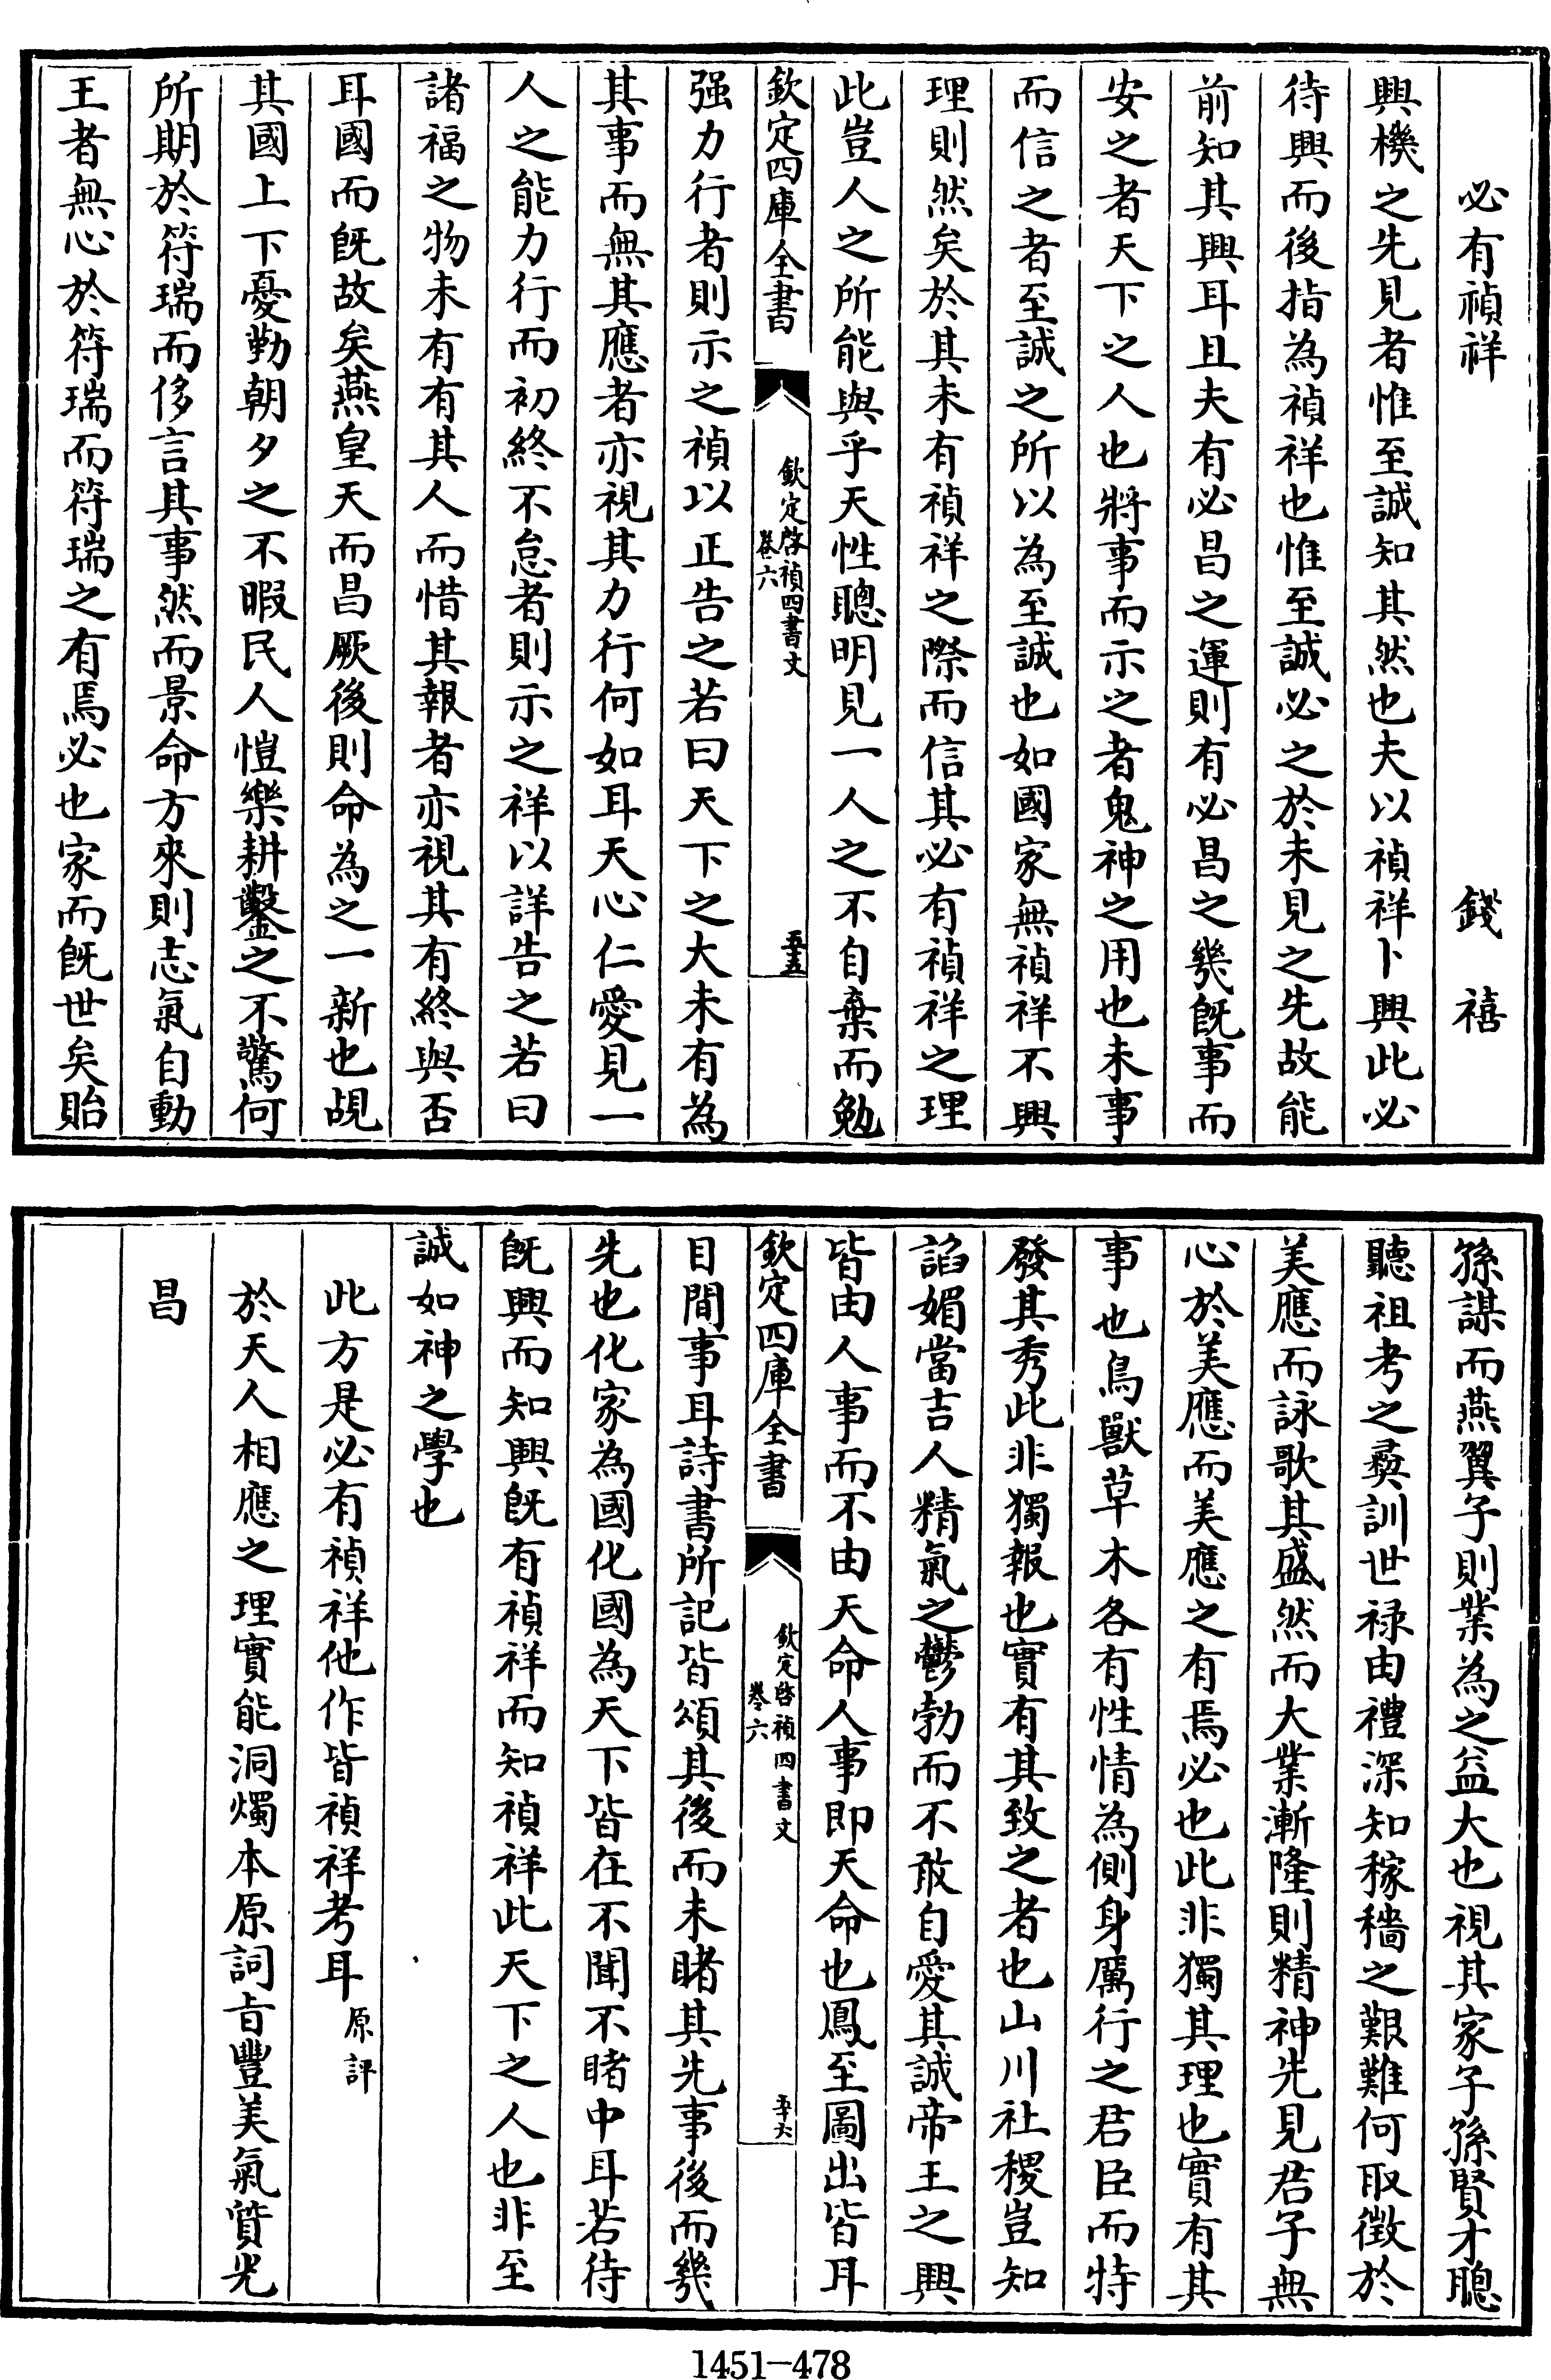 必有禎祥　錢禧
興機之先見者惟至誠知其然也夫以禎祥卜興此必
待興而後指為禎祥也惟至誠必之於未見之先故能
前知其興耳且夫有必昌之運則有必昌之幾旣事而
安之者天下之人也將事而示之者鬼神之用也未事
而信之者至誠之所以為至誠也如國家無禎祥不興
理則然矣於其未有禎祥之際而信其必有禎祥之理
此豈人之所能與乎天性聰明見一人之不自棄而勉
欽定四庫全書
欽定啓禎四書文
卷六
五十五
强力行者則示之禎以正告之若曰天下之大未有為
其事而無其應者亦視其力行何如耳天心仁愛見一
人之能力行而初終不怠者則示之祥以詳告之若曰
諸福之物未有有其人而惜其報者亦視其有終與否
耳國而旣故矣燕皇天而昌厥後則命為之一新也覘
其國上下憂勤朝夕之不暇民人愷樂耕鑿之不驚何
所期於符瑞而侈言其事然而景命方來則志氣自動
王者無心於符瑞而符瑞之有焉必也家而旣世矣貽
孫謀而燕翼子則業為之益大也視其家子孫賢才聰
聽祖考之彞訓世禄由禮深知稼穡之艱難何取徵於
美應而詠歌其盛然而大業漸隆則精神先見君子無
心於美應而美應之有焉必也此非獨其理也實有其
事也鳥獸草木各有性情為側身厲行之君臣而特
發其秀此非獨報也實有其致之者也山川社稷豈知
諂媚當吉人精氣之鬱勃而不敢自愛其誠帝王之興
皆由人事而不由天命人事即天命也鳳至圖出皆耳
欽定四庫全書
欽定啓禎四書文
卷六
五十六
目間事耳詩書所記皆頌其後而未睹其先事後而幾
先也化家為國化國為天下皆在不聞不睹中耳若待
旣興而知興旣有禎祥而知禎祥此天下之人也非至
誠如神之學也
此方是必有禎祥他作皆禎祥考耳 原評
於天人相應之理實能洞燭本原詞旨豐美氣質光
昌
1451-478